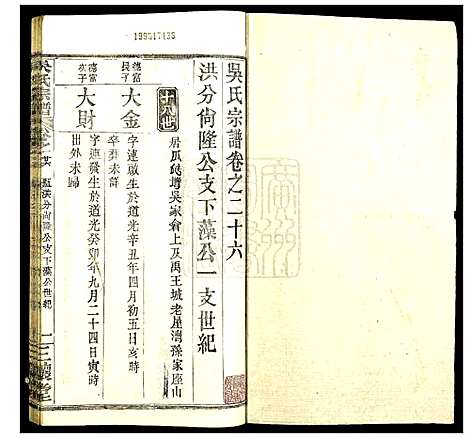 199317135
吳氏宗譜卷之二十六
洪分尚隆公支下藻公一支世紀
十八世
居瓜𡋾增吳家倉上及禹王城老屋灣孫家座山
德富長子
大金
字連啟生於道光辛丑年四月初五日亥時
卒葬未詳
德富次子
大財
字連發生於道光癸卯年九月二十四日寅時
出外未歸
吳氏宗譜
洪分尚隆公支下藻公世紀
一
三讓堂